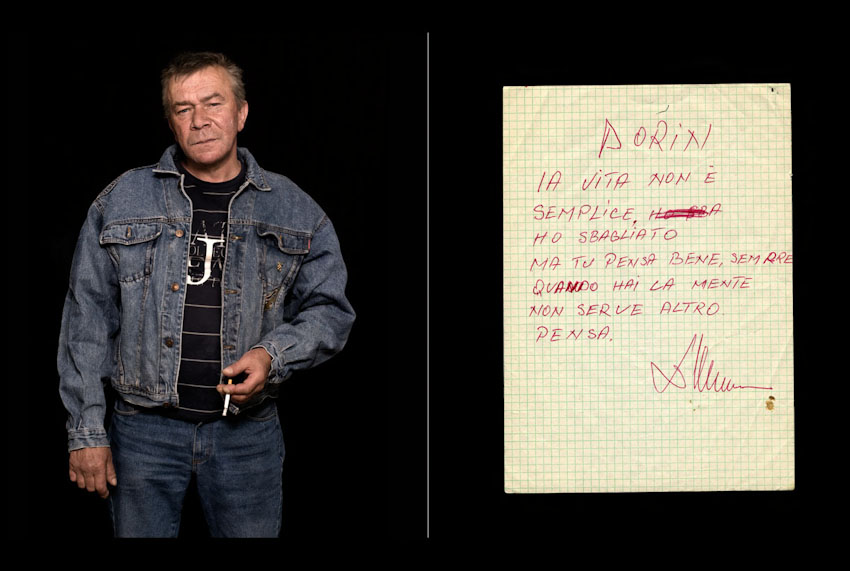 DORIN
LA VITA NON È
SEMPLICE,
HO SBAGLIATO
MA TU PENSA BENE, SEMPRE
QUANDO HAI LA MENTE
NON SERVE ALTRO.
PENSA.
J